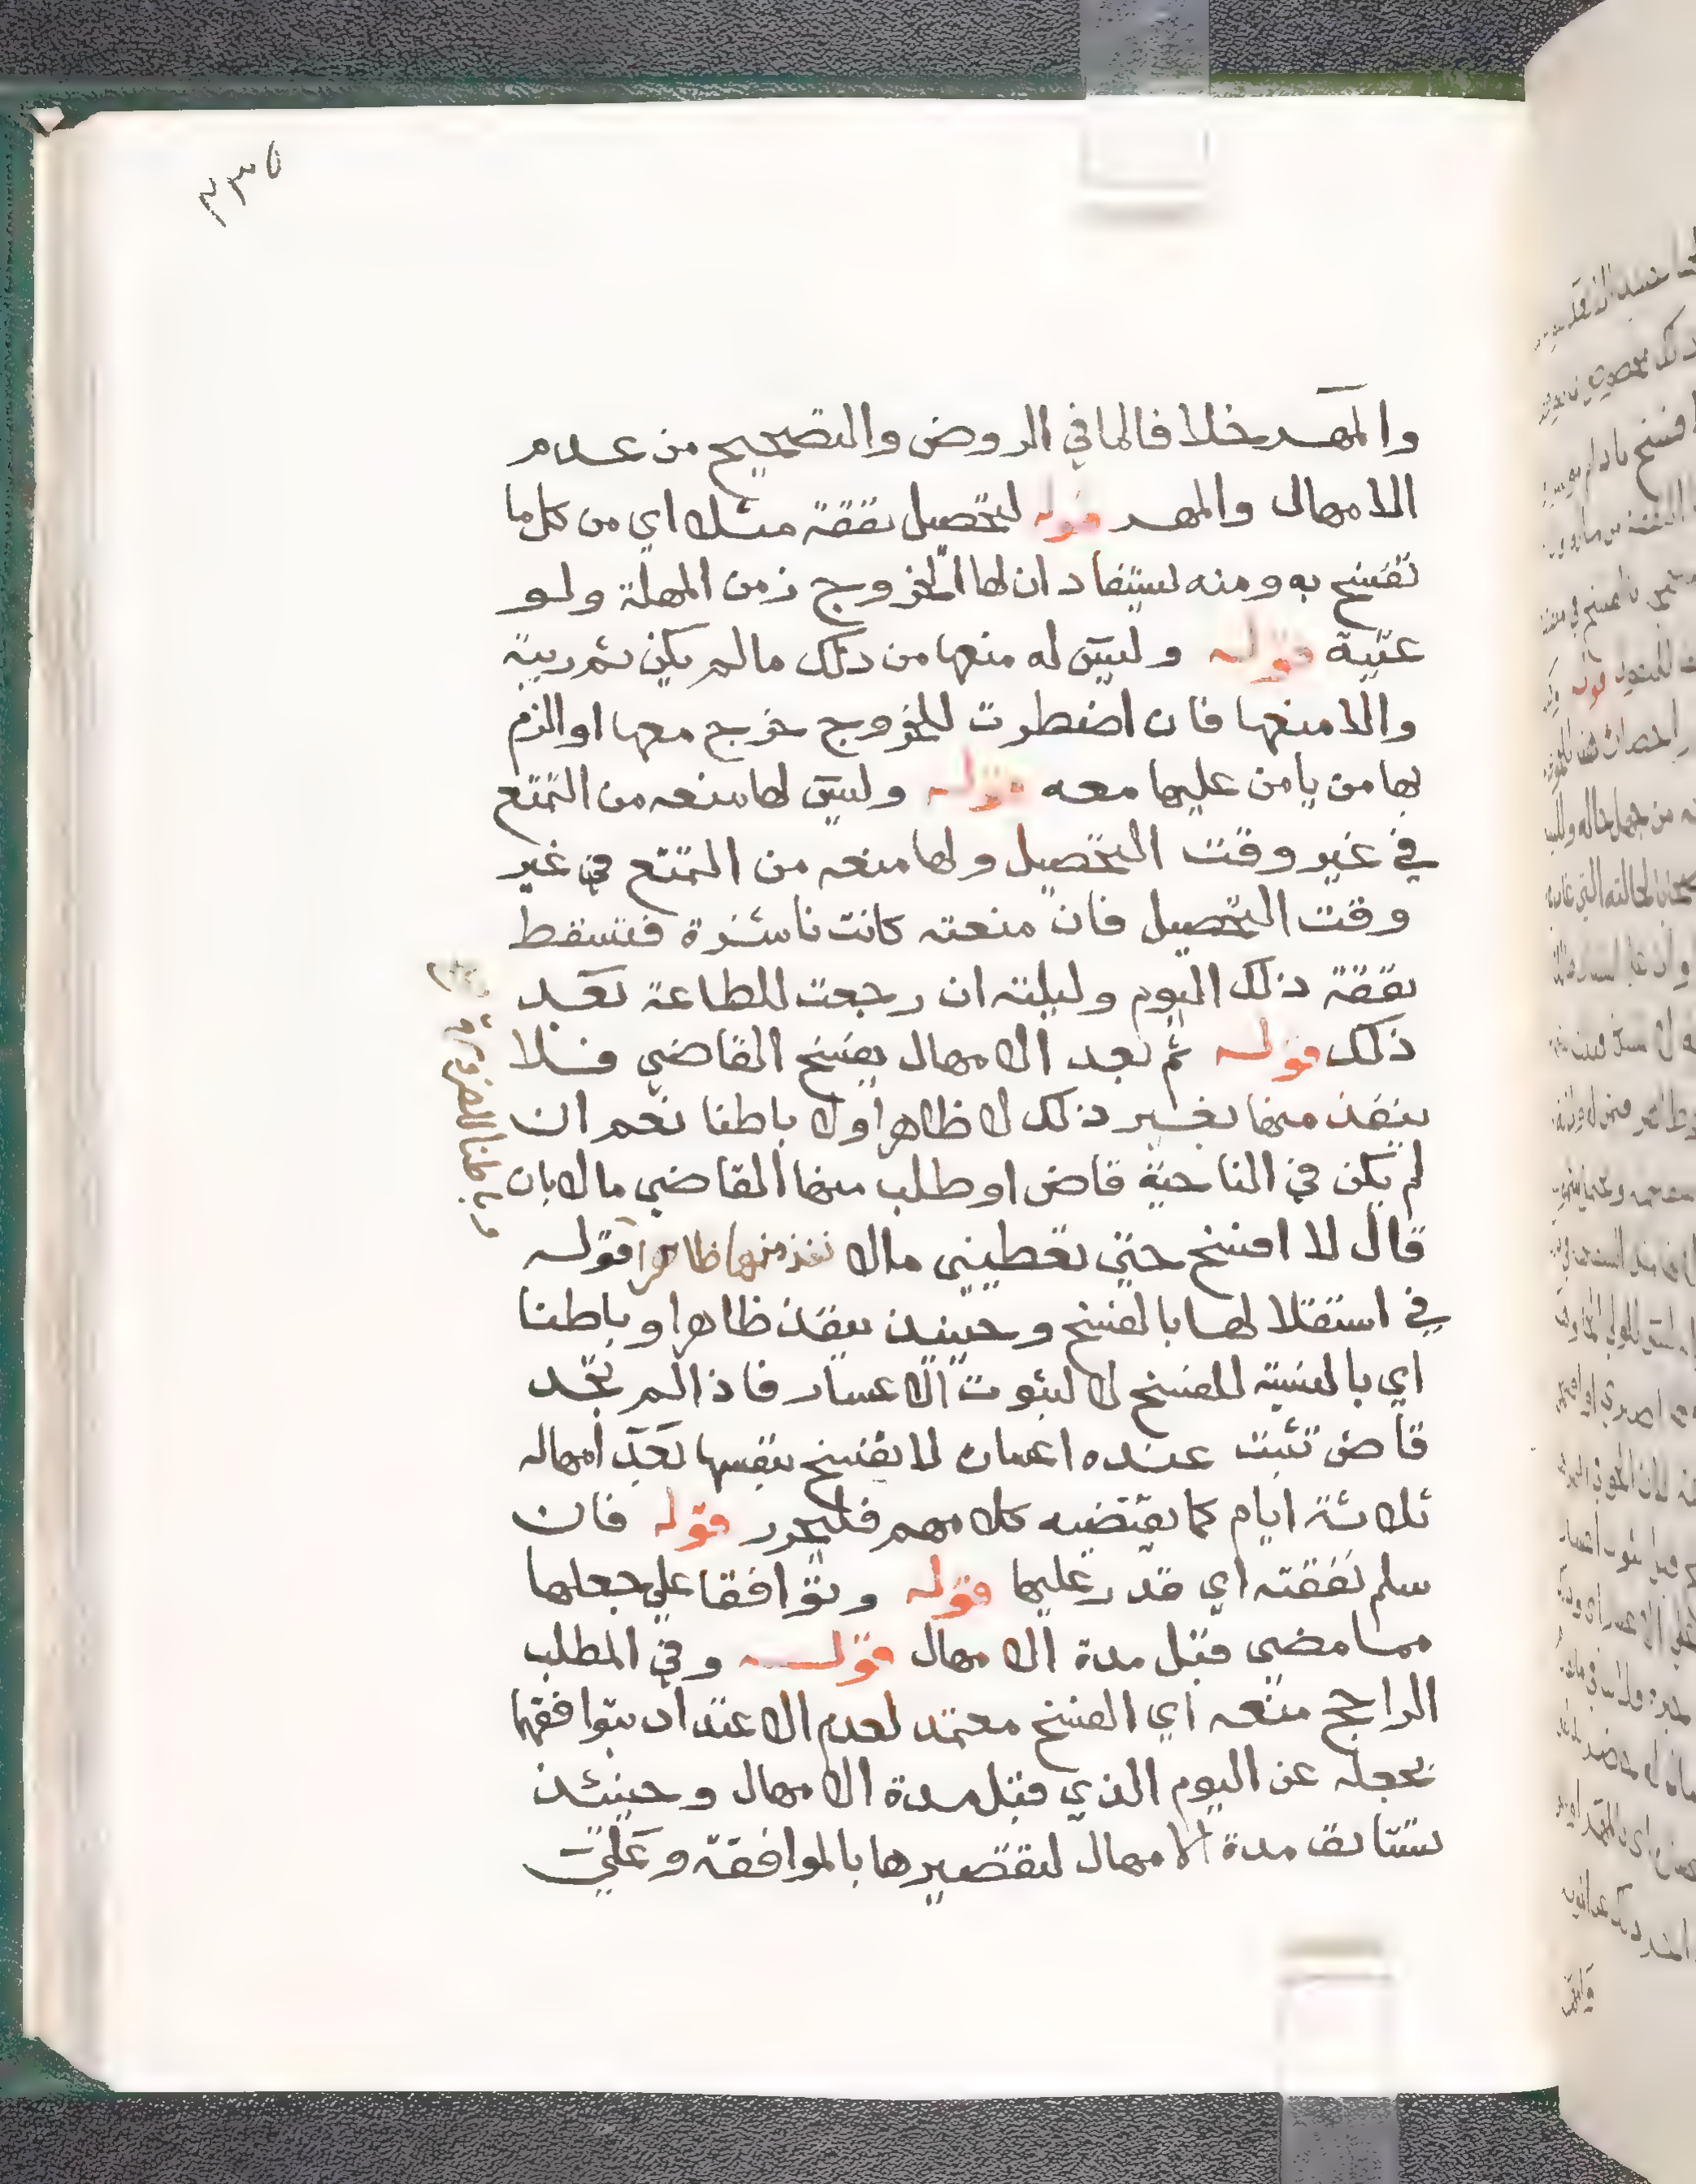 ٣٣٥
والمهر خلافا لما في الروض والتصحيح من عدم
الامهال والمهر قوله لتحصيل نفقة مثلا اي من كل ما
تفسخ به ومنه يستفاد ان لها الخروج زمن المهلة ولو
غنية قوله وليس له منعها من ذلك ما لم يكن ثم ريبة
والا منعها فان اضطرت للخروج خرج معها او الزم
بها من يامن عليها معه قوله وليس لها منعه من التمتع
في غير وقت التحصيل ولها منعه من التمتع في غير
وقت التحصيل فان منعته كانت ناشزة فتسقط
نفقة ذلك اليوم وليلته ان رجعت للطاعة بعد
ذلك قوله ثم بعد الامهال يفسخ القاضي فلا
ينفذ منها بغير ذلك لا ظاهرا ولا باطنا نعم ان
لم يكن في الناحية قاض او طلب منها القاضي مالا بان
قال لا افسخ حتى تعطيني مالا نفذ منها ظاهرا قوله
وباطنا للضرورة
في استقلالها بالفسخ وحينئذ ينفذ ظاهرا وباطنا
اي بالنسبة للفسخ لا لثبوت الاعسار فاذا لم تجد
قاض تثبت عنده اعساره لا تفسخ بنفسها بعد امهاله
ثلاثة ايام كما يقتضيه كلامهم فليحرر قوله فان
سلم نفقته اي قدر عليها قوله وتوافقا على جعلها
مما مضى قبل مدة الامهال قوله وفي المطلب
الراجح منعه اي الفسخ معتمد لعدم الاعتداد بتوافقهما
بجعله عن اليوم الذي قبل مدة الامهال وحينئذ
تستانف مدة الامهال لتقصيرها بالموافقة وعلى